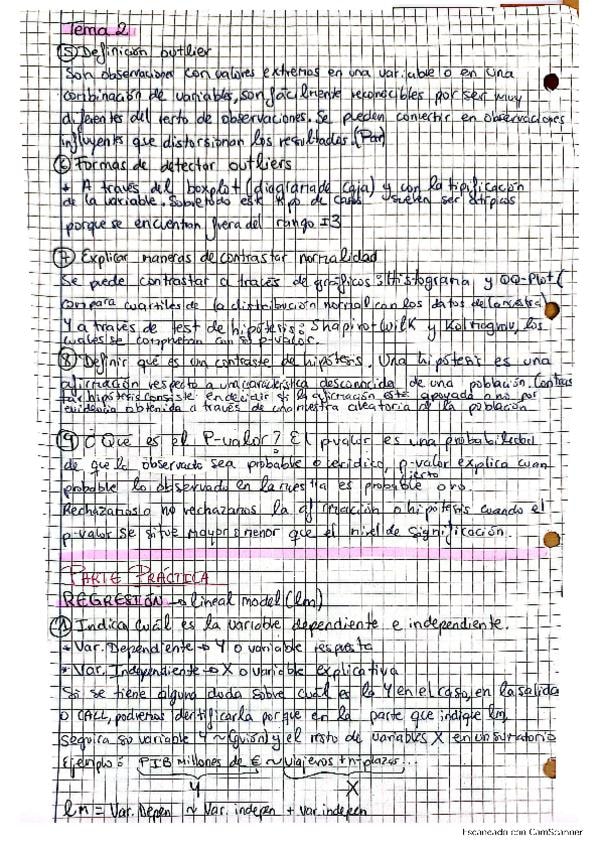 Tema 2
⑤ Definición outlier
Son observaciones con valores extremos en una variable o en una
combinación de variables, son fácilmente reconocibles por ser muy
diferentes del resto de observaciones. Se pueden convertir en observaciones
influyentes que distorsionan los resultados. (Par)
⑥ Formas de detectar outliers
A través del boxplot (diagrama de caja) y con la tipificación
de la variable. Sobretodo este tipo de casos suelen ser atípicos
porque se encuentran fuera del rango ±3
⑦ Explicar maneras de contrastar normalidad
Se puede contrastar a través de gráficos: Histograma y QQ-Plot (
compara cuartiles de la distribución normal con los datos de la muestra)
Y a través de test de hipótesis: Shapiro-Wilk y Kolmogrov, los
cuales se comprueban con su p-valor.
⑧ Definir qué es un contraste de hipótesis. Una hipótesis es una
afirmación respecto a una característica desconocida de una población. Contras
tar hipótesis consiste en decidir si la afirmación está apoyada o no por
evidencia obtenida a través de una muestra aleatoria de la población
⑨ ¿Qué es el P-valor? El pvalor es una probabilidad
de que lo observado sea probable o verídico, p-valor explica cuan
cierto
probable lo observado en la muestra es probable o no.
Rechazamos o no rechazamos la afirmación o hipótesis cuando el
p-valor se situe mayor o menor que el nivel de significación.
PARTE PRÁCTICA
REGRESIÓN → lineal model (lm)
① Indica cuál es la variable dependiente e independiente.
Var. Dependiente → Y o variable respuesta
Var. Independiente → X o variable explicativa
Si se tiene alguna duda sobre cuál es la Y en el caso, en la salida
o CALL, podremos identificarla porque en la parte que indique lm,
seguira su variable Y ~ (guión) y el resto de variables X en un sumatorio
Ejemplo: PIB millones de € ~ viajeros + n-plazas...
Y X
lm = Var. Depen ~ Var. indepen + var. indepen
Escaneado con CamScanner